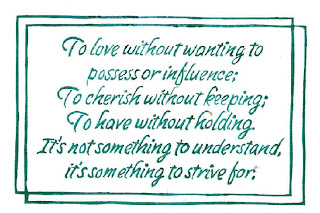 To love without wanting to
possess or influence;
To cherish without keeping;
To have without holding.
It's not something to understand,
it's something to strive for.